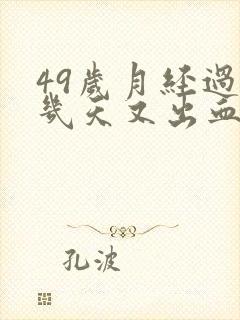 49歲月经過
幾天又出血
孔波